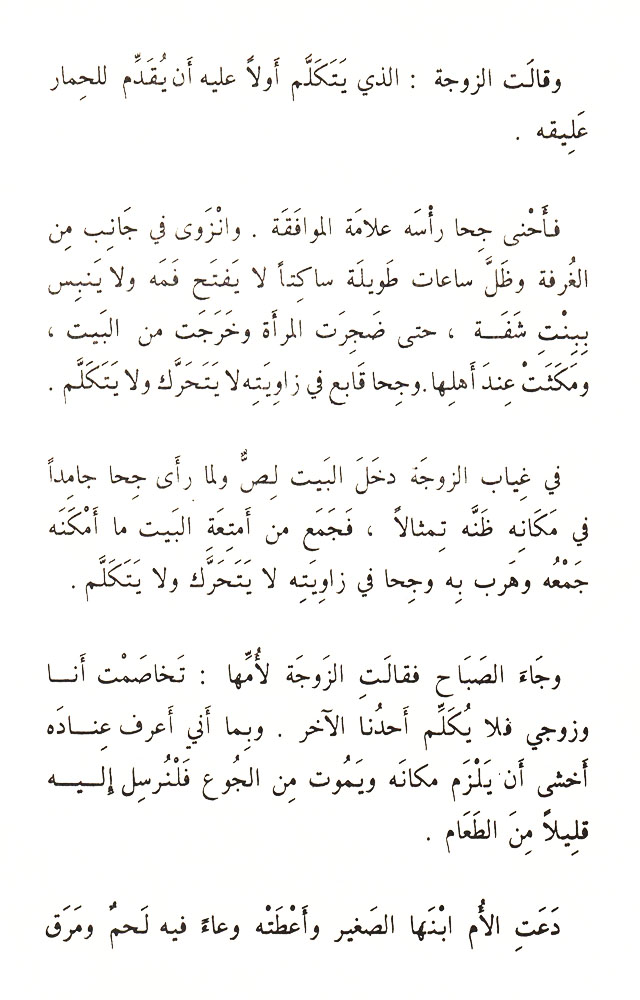 وقالَت الزوجة : الذي يَتَكَلَّم أَولاً عليه أَن يُقَدِّم للحِمار
عَلِيقه .
فأَحْنى جِحا رأْسَه علامَة الموافَقَة . وانْزَوى في جَانِب مِن
الغُرفة وظَلَّ ساعات طَويلَة ساكِتاً لا يَفتَح فَمَه ولا يَنبِس
بِبِنْتِ شَفَــة ، حتى ضَجِرَت المرأَة وخَرَجَت من البَيت ،
ومَكَثَتْ عِندَ أَهلِها.وجِحا قَابع في زاوِيَتِه لا يَتَحَرَّك ولا يَتَكَلَّم .
في غِياب الزوجَة دخَلَ البَيت لِصٌّ ولما رأَى جِحا جامِداً
في مَكَانِه ظَنَّه تِمثالاً ، فَجَمَع من أَمتِعَةِ البَيت ما أَمْكَنَه
جَمْعُه وهَرب بِه وجِحا في زاوِيَتِه لا يَتَحَرَّك ولا يَتَكَلَّم .
وجَاءَ الصَبَاح فقالَتِ الزَوجَة لأُمِّها : تَخاصَمْت أَنــا
وزوجي فلا يُكَلِّم أَحدُنا الآخر . وبِما أَني أَعرف عِنــادَه
أَخشى أَن يَلْزَم مكانَه ويَمُوت مِن الجُوع فَلْنُرسِل إِلــيــه
قلِيلاً مِنَ الطَعَام .
دَعَتِ الأُم ابْنَها الصَغير وأَعْطَتْه وعاءً فيه لَحمٌ ومَرَق